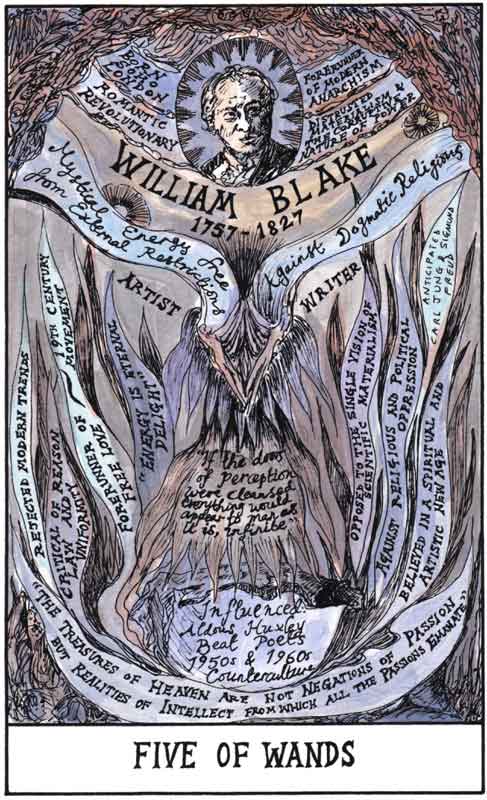 BORN
SOHO
LONDON
ROMANTIC
REVOLUTIONARY
FORERUNNER
OF MODERN
ANARCHISM
NATURE OF POWER
WILLIAM BLAKE
1757-1827
Mystical Energy Free
from External Restrictions
Against Dogmatic Religions
ARTIST
WRITER
REJECTED MODERN TRENDS
CRITICAL OF REASON
LAW AND
UNIFORMITY
FORERUNNER OF 19TH CENTURY
FREE LOVE MOVEMENT
"ENERGY IS ETERNAL
DELIGHT"
OPPOSED TO THE SINGLE VISION OF
SCIENTIFIC MATERIALISM
AGAINST RELIGIOUS AND POLITICAL
OPPRESSION
BELIEVED IN A SPIRITUAL AND
ARTISTIC NEW AGE
ANTICIPATED
CARL JUNG & SIGMUND
FREUD
"If the doors
of perception
were cleansed
everything would
appear to man as
it is, infinite"
Influenced:
Aldous Huxley
Beat Poets
1950s & 1960s
Counterculture
"THE TREASURES OF HEAVEN ARE NOT NEGATIONS OF PASSION
BUT REALITIES OF INTELLECT FROM WHICH ALL THE PASSIONS EMANATE"
FIVE OF WANDS